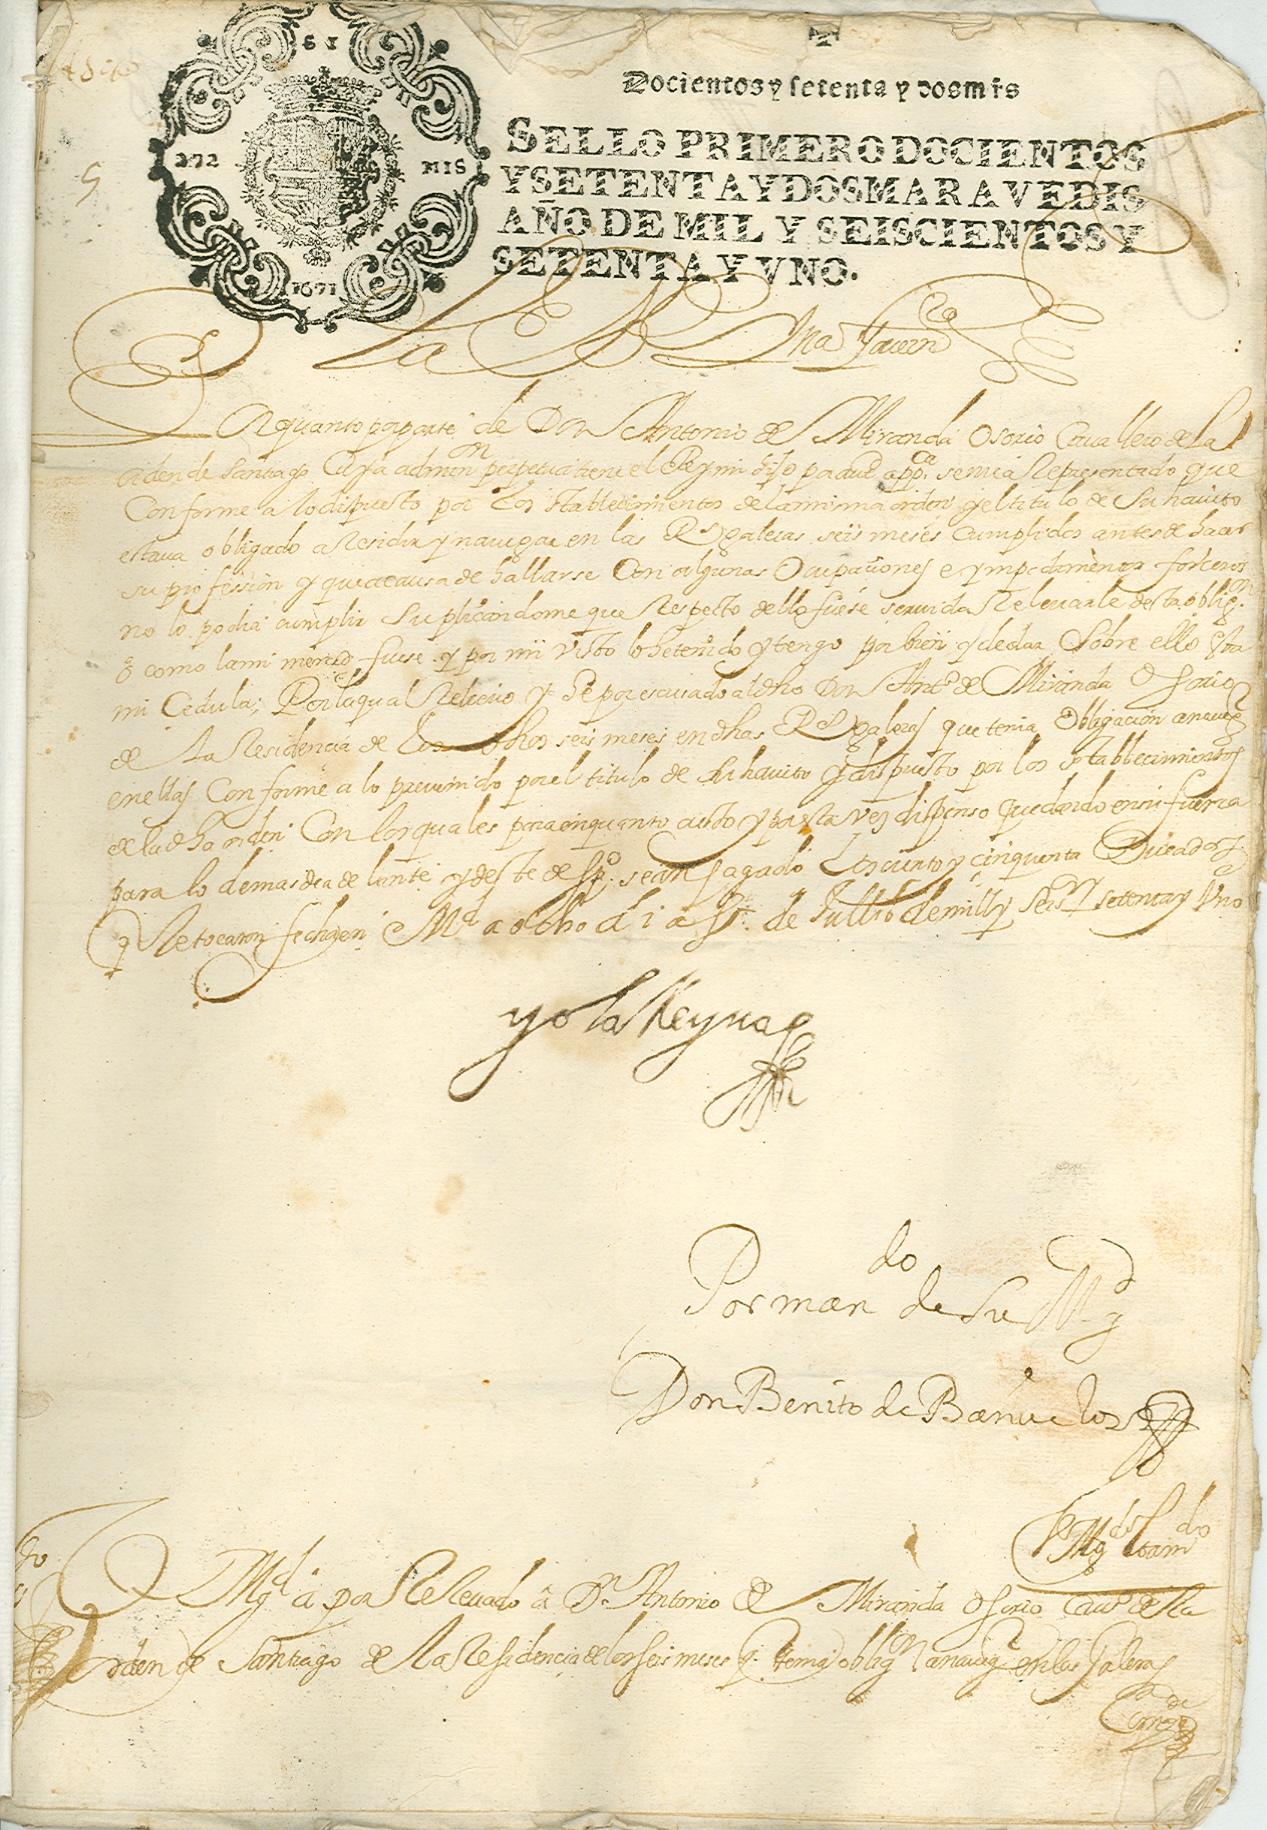 Docientos y setenta y dos mrs
SELLO PRIMERO DOCIENTOS
Y SETENTA Y DOS MARAVEDIS
AÑO DE MIL Y SEISCIENTOS Y
SETENTA Y VNO.
272 MIS
1671
La Rna Govern
Por quanto por parte de Don Antonio de Miranda Osorio Cavallero de la
orden de Santiago Cuya admon perpetua tiene el Rey mi hijo por aud appca se me a Representado que
Conforme a lo dispuesto por Los stablecimientos de la misma orden y el titulo de Su havito
estava obligado a Residir y navegar en las Rs galeras seis meses Cumplidos antes de hacer
su profession y que a causa de hallarse Con algunas Ocupaciones e ympedimentos forcosos
no lo podia cumplir Suplicandome que Respecto dello fuese servida Relevarle desta obligon
o como la mi merced fuese y por mi visto lo he tenido y tengo por bien y de dar Sobre ello esta
mi Cedula; Por la qual Relievo y Dé por escusado al dho Don Anto de Miranda Osorio
de La Residencia de Los dhos seis meses en dhas Rs galeras que tenia Obligacion a navegr
en ellas Conforme a lo prevenido por el titulo de Su havito y dispuesto por los stablecimientos
de la dha orden Con los quales para en quanto a esto y por esta vez dispenso quedando en su fuerza
para lo demas de adelante y deste despo se an pagado Los ciento y cinquenta Ducados
q le tocaron fecha en Md a ocho dias de Jullio de mill y seisos setenta y Uno
yo la Reyna
Por mando de Su Mgd
Don Benito de Banuelos
V Mgd á por Relevado á Dn Antonio de Miranda Osorio Cavo de la
orden de Santiago de La Residencia de los seis meses q tenia obligon a navegr en las Galeras